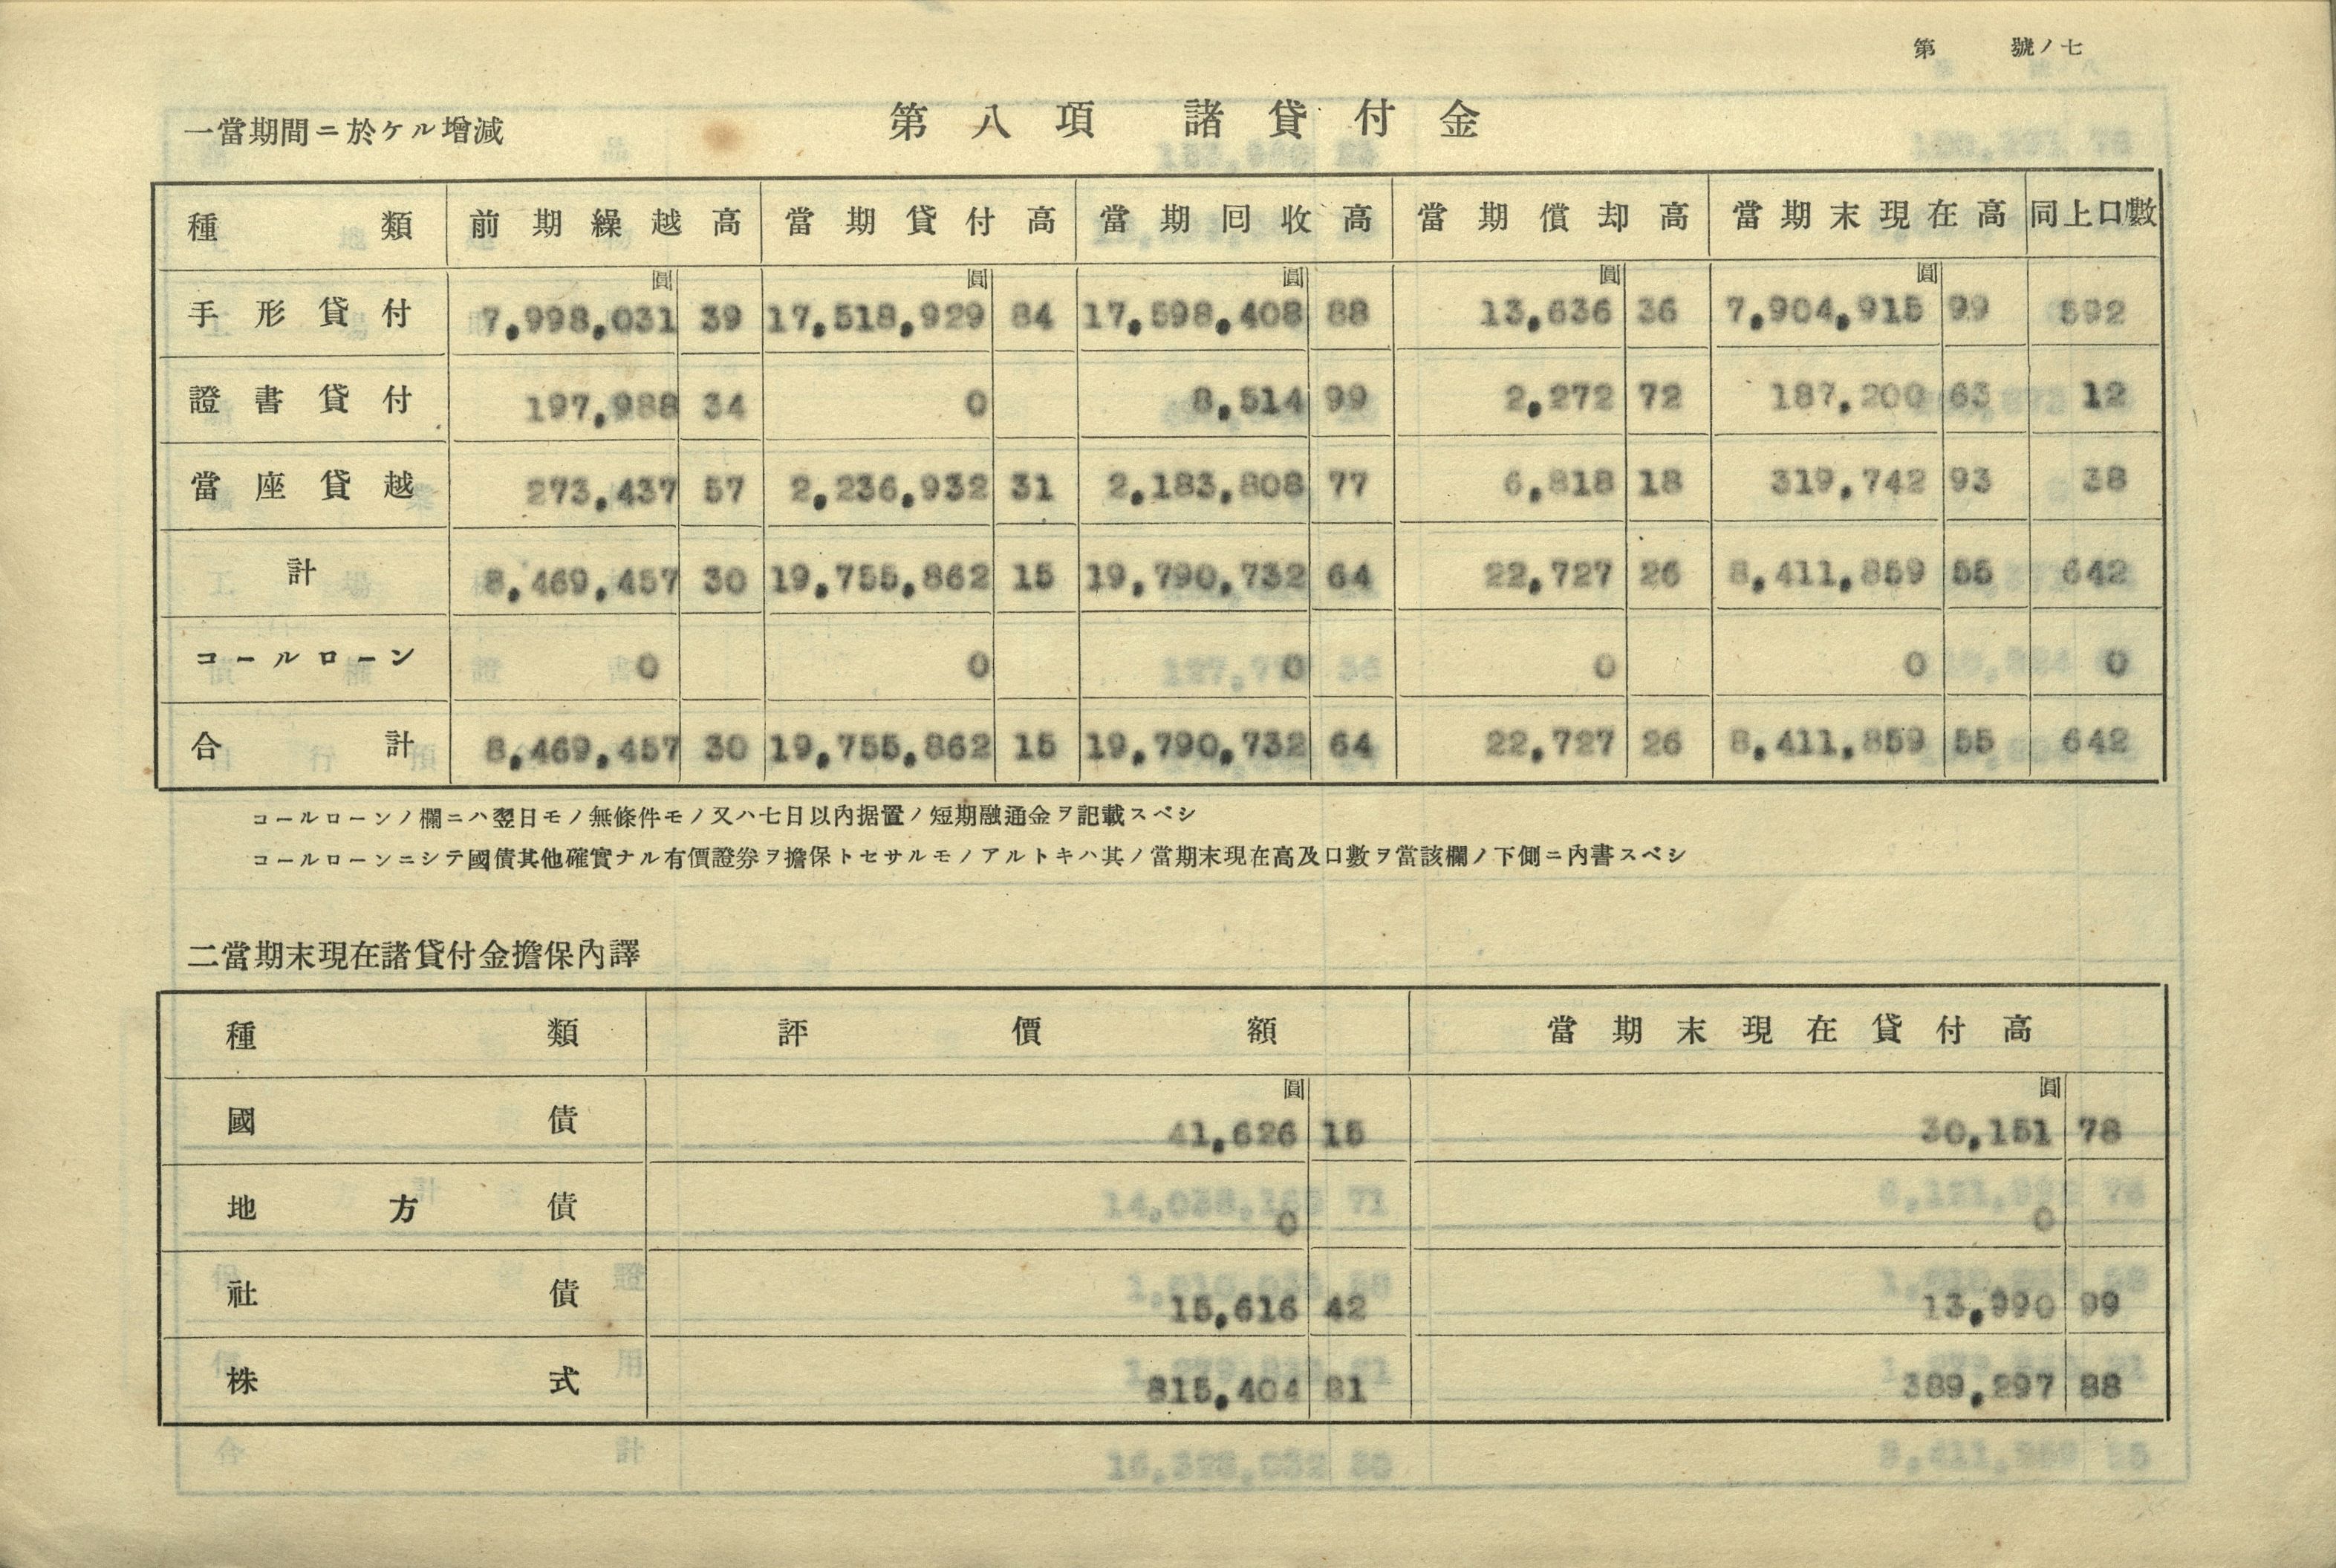 第 號ノ七
第八項 諸貸付金
一當期間ニ於ケル增減
種類 前期繰越高 當期貸付高 當期囘收高 當期償却高 當期末現在高 同上口數
圓 圓 圓 圓 圓
手形貸付 7,998,031 39 17,518,929 84 17,598,408 88 13,636 36 7,904,915 99 592
證書貸付 197,988 34 0 8,514 99 2,272 72 187,200 63 12
當座貸越 273,437 57 2,236,932 31 2,183,808 77 6,818 18 319,742 93 38
計 8,469,457 30 19,755,862 15 19,790,732 64 22,727 26 8,411,859 55 642
コールローン 0 0 0 0 0 0
合計 8,469,457 30 19,755,862 15 19,790,732 64 22,727 26 8,411,859 55 642
コールローンノ欄ニハ翌日モノ無條件モノ又ハ七日以內据置ノ短期融通金ヲ記載スベシ
コールローンニシテ國債其他確實ナル有價證券ヲ擔保トセサルモノアルトキハ其ノ當期末現在高及口數ヲ當該欄ノ下側ニ內書スベシ
二當期末現在諸貸付金擔保內譯
種類 評價額 當期末現在貸付高
圓 圓
國債 41,626 15 30,151 78
地方債 0 0
社債 15,616 42 13,990 99
株式 815,404 81 389,297 88